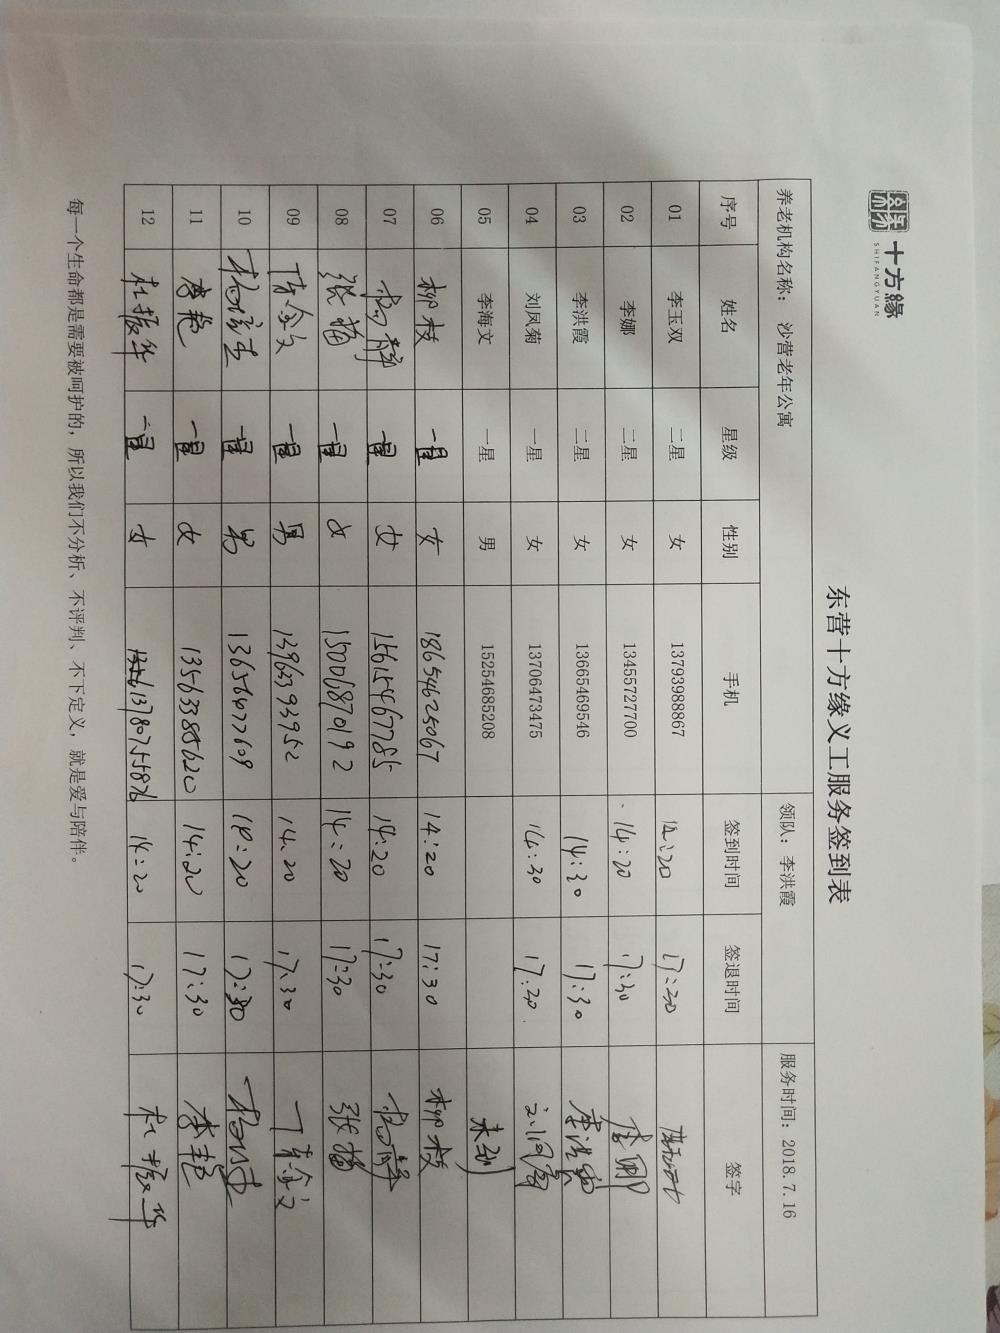 十方緣
SHIFANGYUAN
东营十方缘义工服务签到表
养老机构名称： 沙营老年公寓 领队：李洪霞 服务时间：2018.7.16
序号 姓名 星级 性别 手机 签到时间 签退时间 签字
01 李玉双 二星 女 13793988867 14:20 17:30
02 李娜 二星 女 13455727700 14:20 17:30 李娜
03 李洪霞 二星 女 13665469546 14:30 17:30 李洪霞
04 刘凤菊 一星 女 13706473475 14:30 17:30
05 李海文 一星 男 15254685208 未到
06 柳枝 一星 女 18654625067 14:20 17:30 柳枝
07 杨静 一星 女 15615467785 14:20 17:30 杨静
08 张苗 一星 女 15006870192 14:20 17:30 张苗
09 一星 男 13963393952 14:20 17:30
10 一星 男 13656477609 14:20 17:30
11 李艳 一星 女 13563385620 14:20 17:30 李艳
12 杜振华 二星 女 13780755876 14:20 17:30 杜振华
每一个生命都是需要被呵护的，所以我们不分析、不评判、不下定义，就是爱与陪伴。